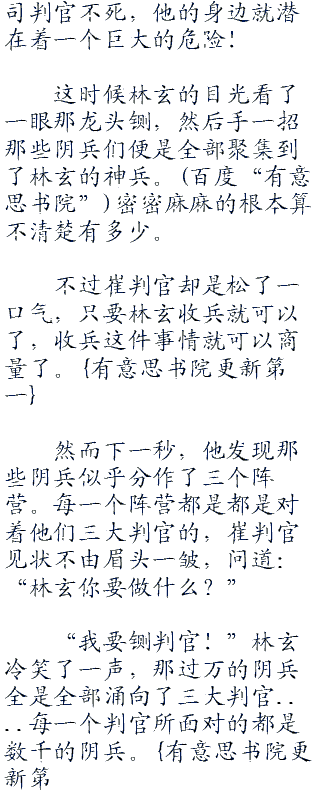 司判官不死，他的身边就潜
在着一个巨大的危险！
这时候林玄的目光看了
一眼那龙头铡，然后手一招
那些阴兵们便是全部聚集到
了林玄的神兵。(百度“有意
思书院”)密密麻麻的根本算
不清楚有多少。
不过崔判官却是松了一
口气，只要林玄收兵就可以
了，收兵这件事情就可以商
量了。{有意思书院更新第
一}
然而下一秒，他发现那
些阴兵似乎分作了三个阵
营。每一个阵营都是都是对
着他们三大判官的，崔判官
见状不由眉头一皱，问道：
“林玄你要做什么？”
“我要铡判官！”林玄
冷笑了一声，那过万的阴兵
全是全部涌向了三大判官..
..每一个判官所面对的都是
数千的阴兵。{有意思书院更
新第